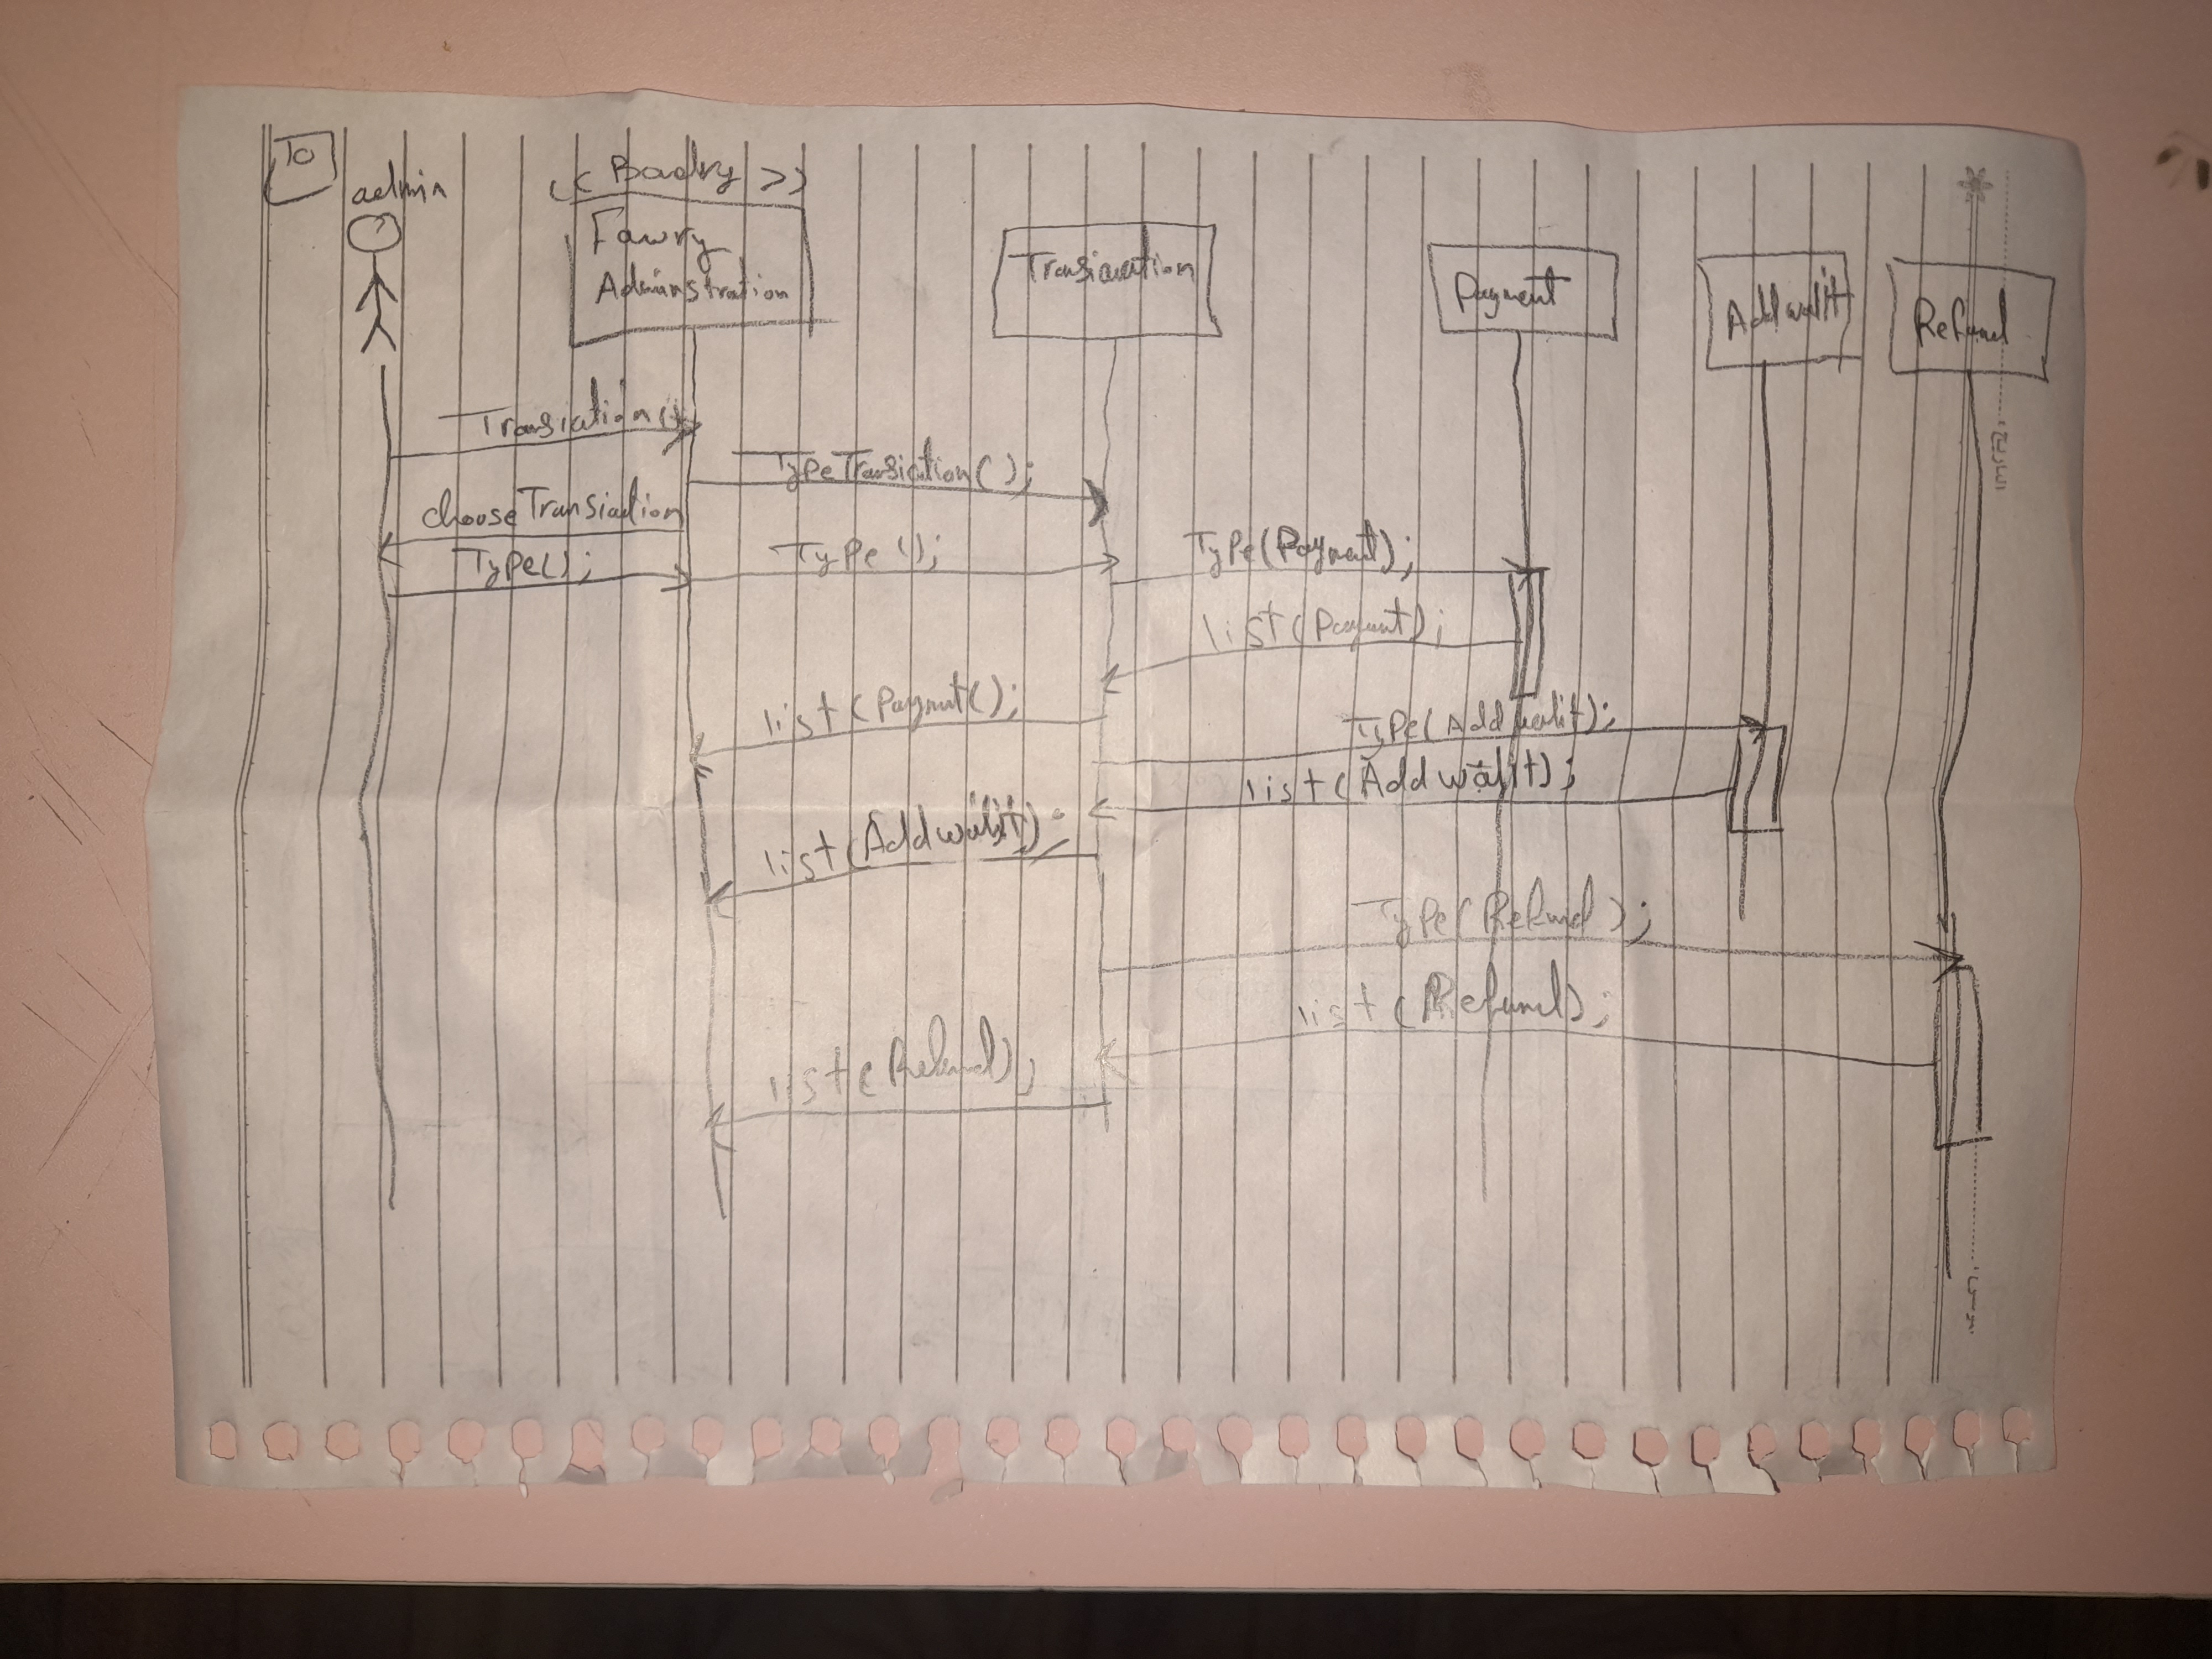 To
admin
<< Boudry >>
Fawry
Adminstration
Transiaction
Payment
Add walit
Refund
التاريخ :
Transiction();
TypeTransiction();
chooseTransiaction
Type();
Type();
Type(Payment);
list(Payment);
list(Paymnt();
Type(Add walit);
list(Add walit);
list(Add walit);
Type(Refund);
list(Refund);
list(Refund);